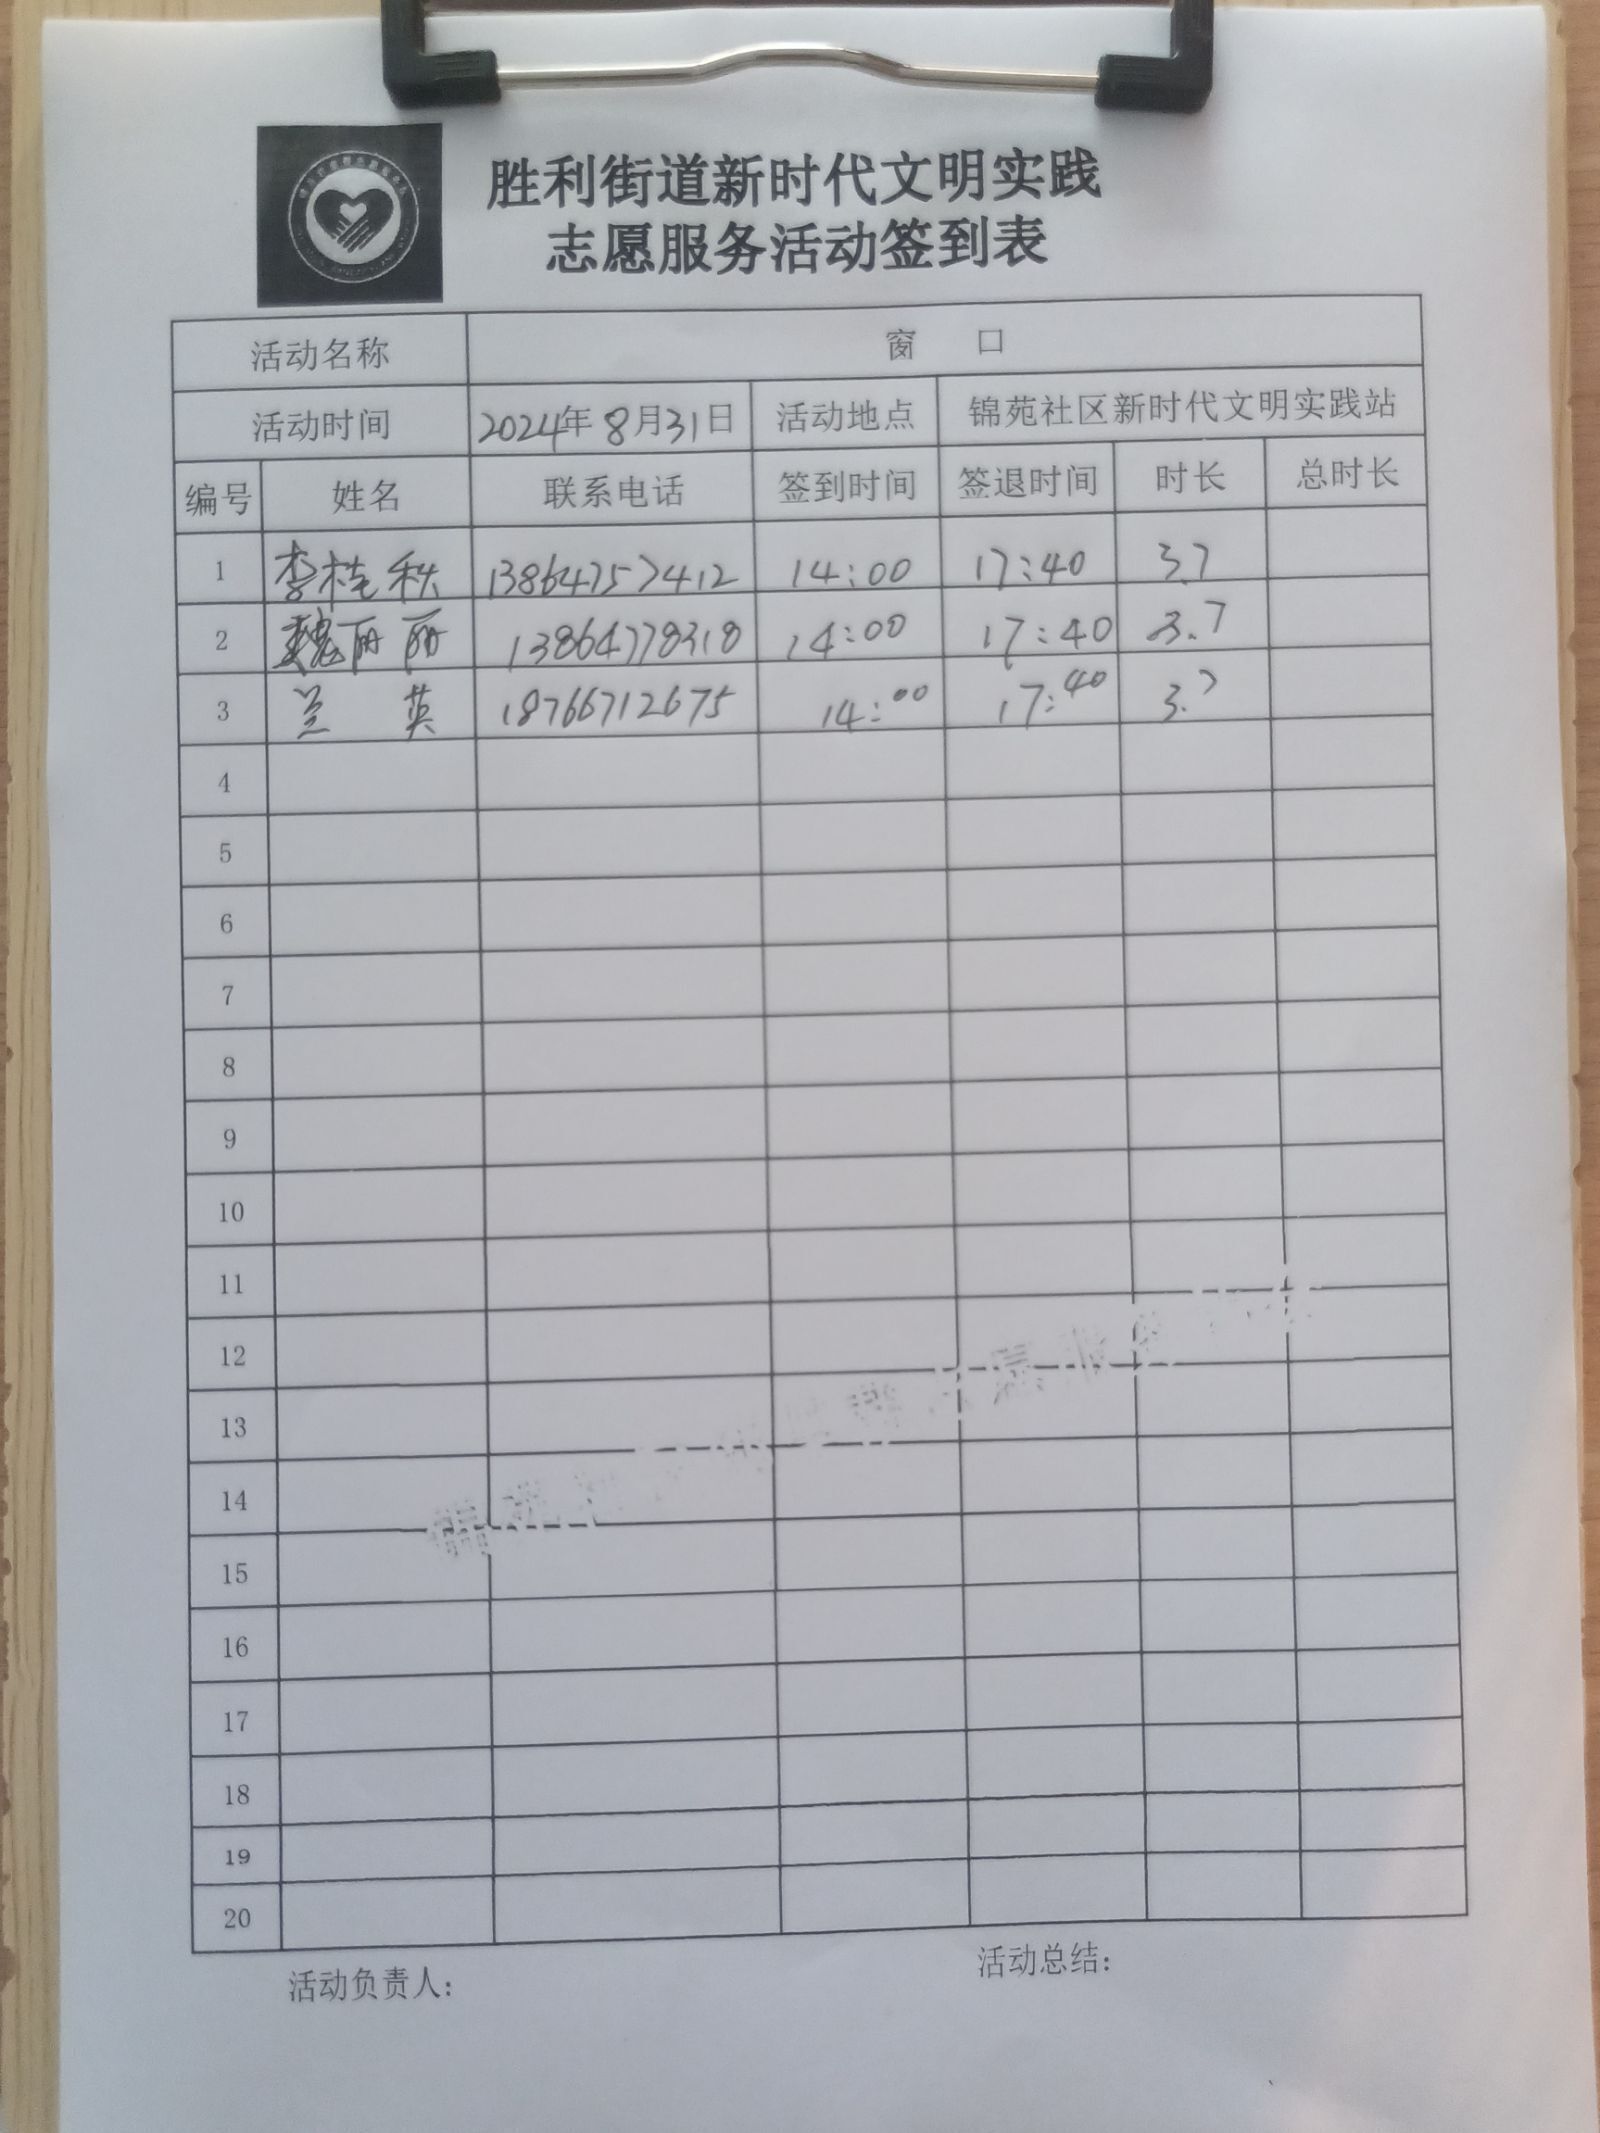 胜利街道新时代文明实践
志愿服务活动签到表
活动名称 窗 口
活动时间 2024年8月31日 活动地点 锦苑社区新时代文明实践站
编号 姓名 联系电话 签到时间 签退时间 时长 总时长
1 李桂秋 13864757412 14:00 17:40 3.7
2 魏丽丽 13864778318 14:00 17:40 3.7
3 兰 英 18766712675 14:00 17:40 3.7
4
5
6
7
8
9
10
11
12
13
14
15
16
17
18
19
20
活动负责人: 活动总结: